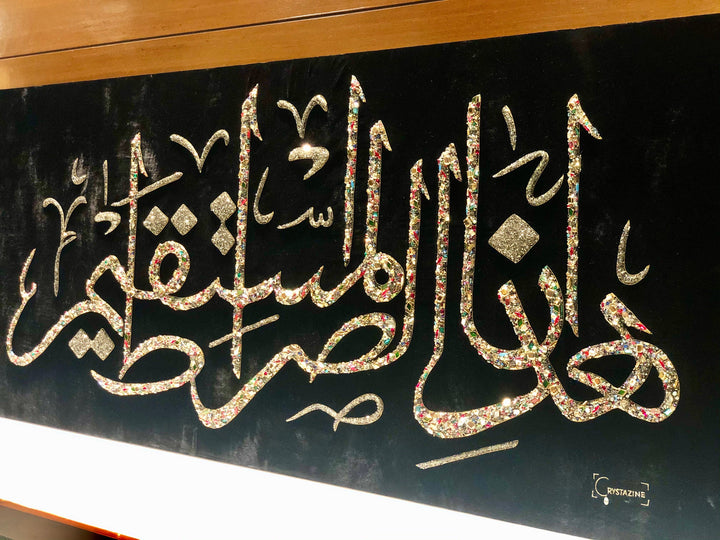 اهدنا الصراط المستقيم
CRYSTAZINE